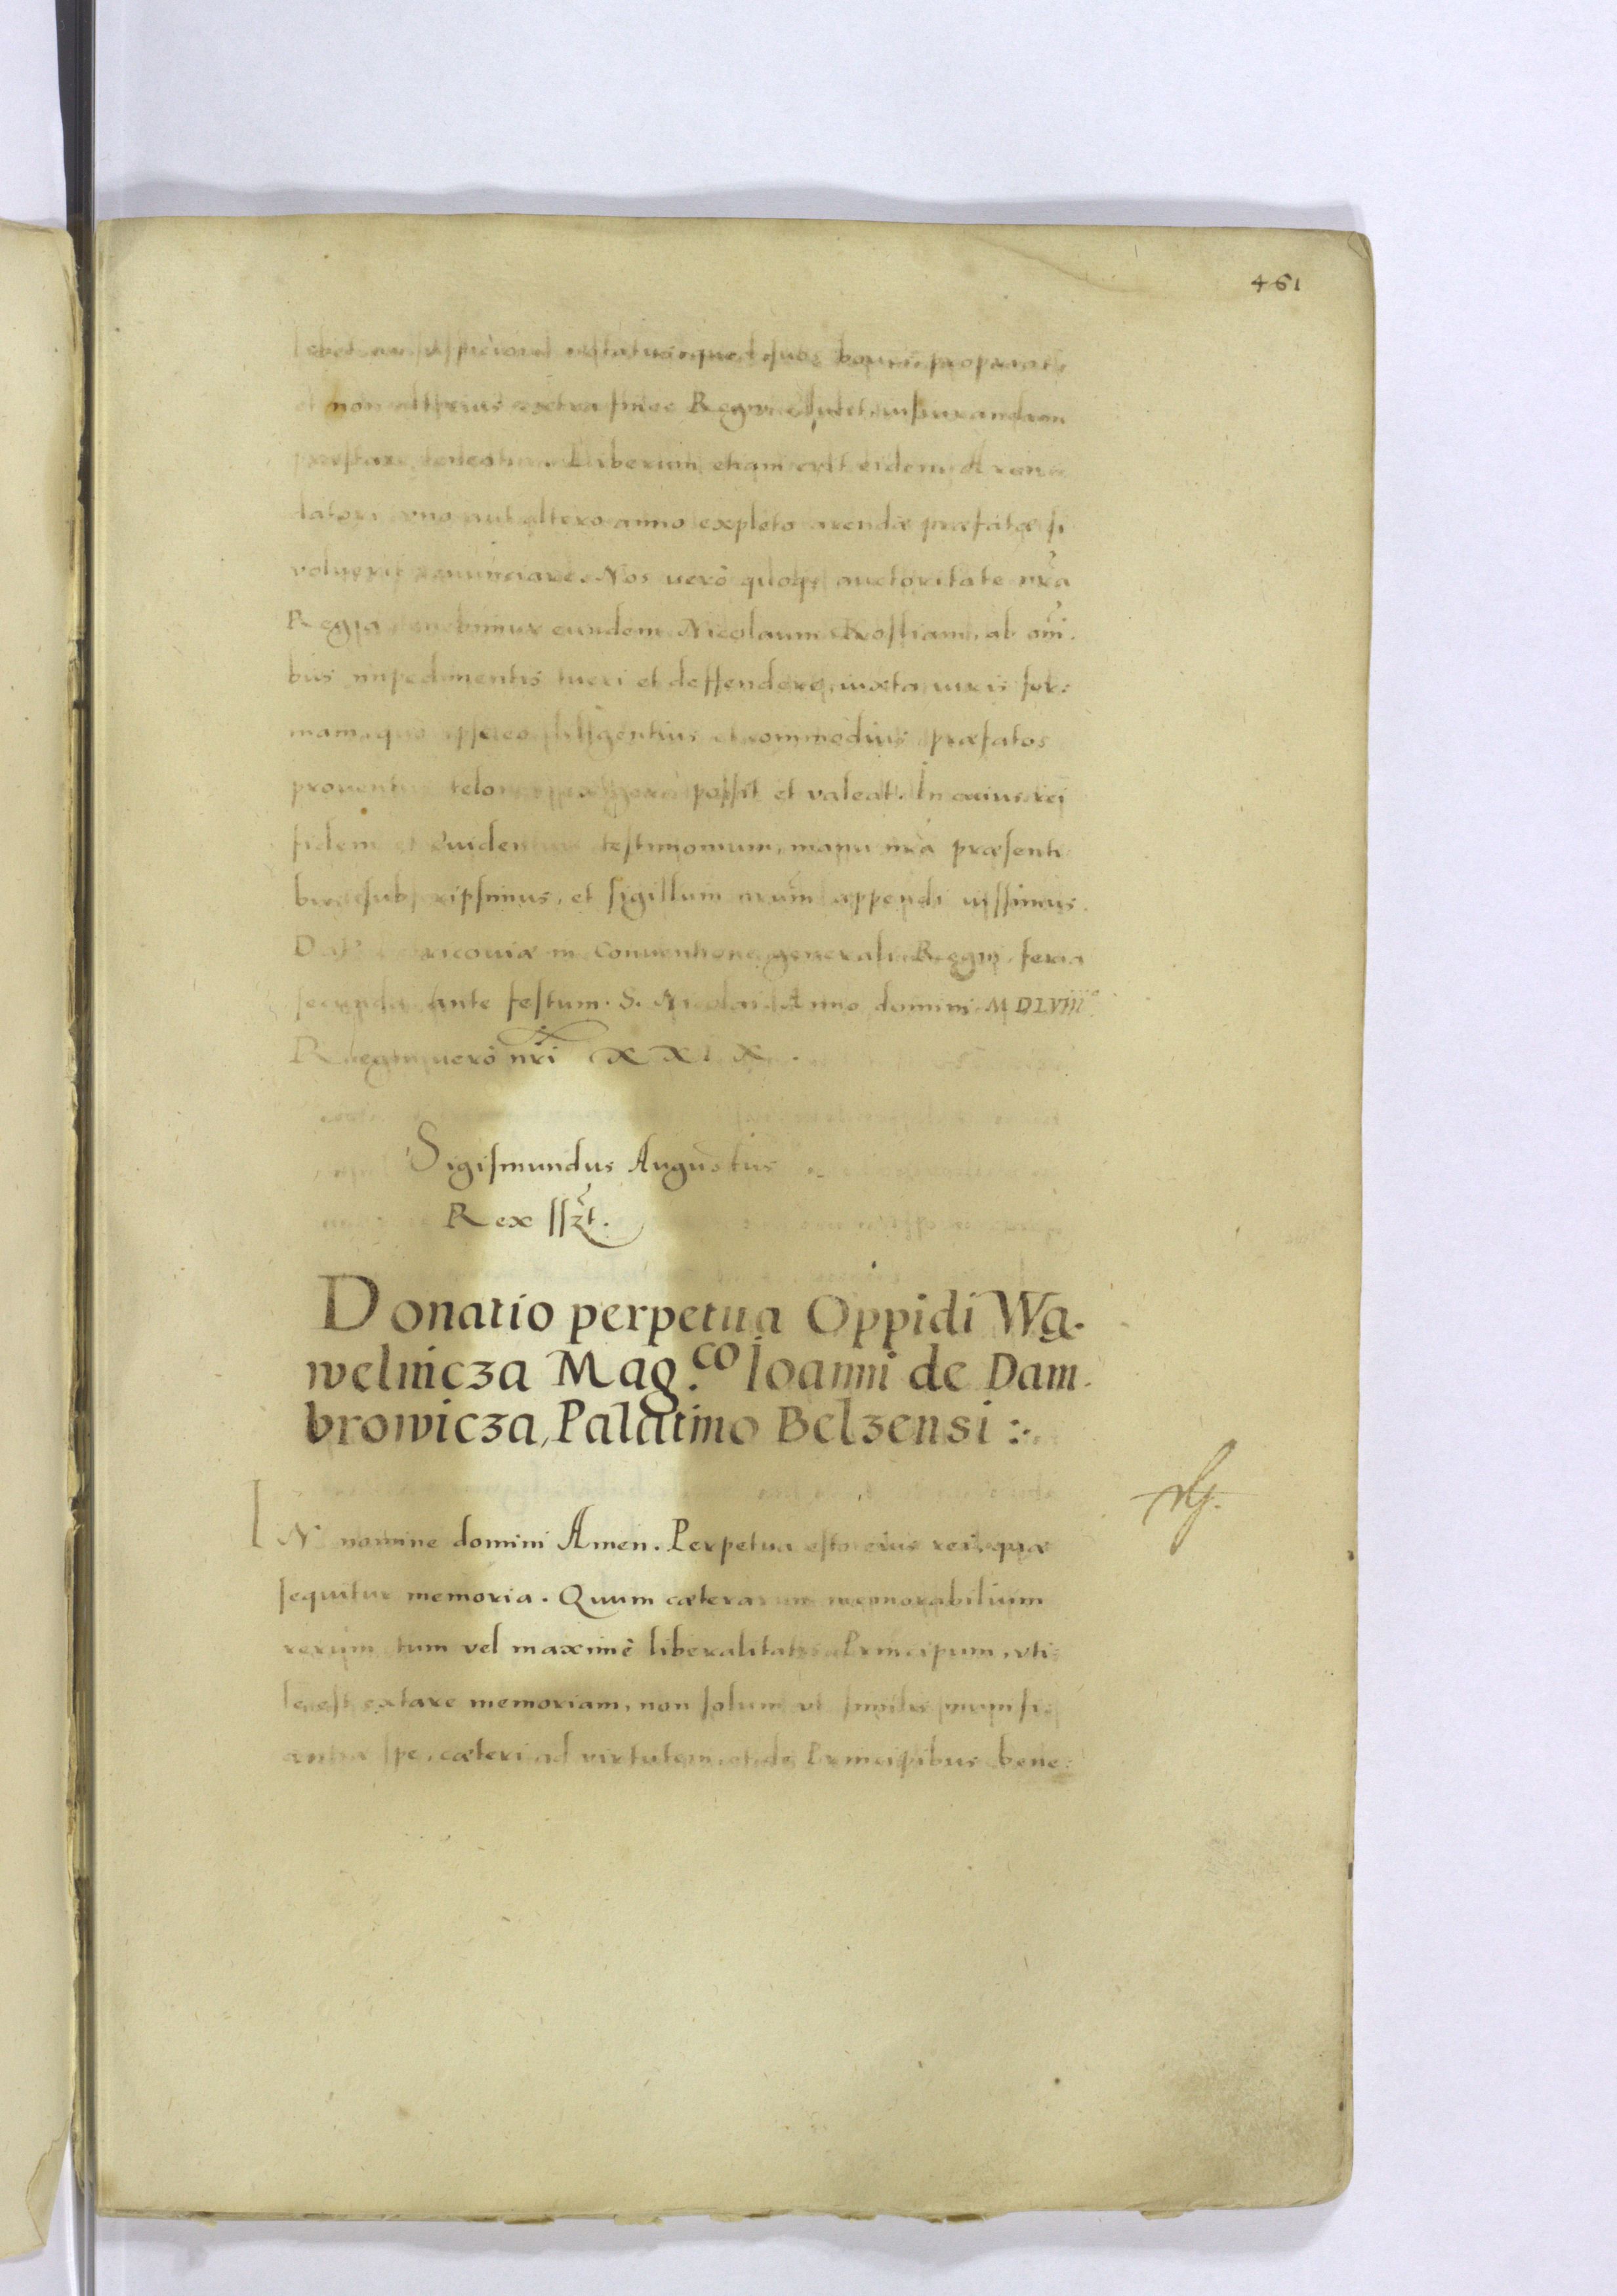 461
et non alterius extra fines Regni
præstare teneatur. Liberum etiam erit eidem Aren
datori vno aut altero anno expleto arendæ præfatæ si
voluerit renunciare. Nos uerò quoq; auctoritate nr̃a
Regia tenebimur eundem Nicolaum ab om̃i.
bus impedimentis tueri et deffendere, iuxta iuris for:
mam, quo ipse eo diligentius et commodius præfatos
prouentus possit et valeat. In cuius rei
fidem et euidentius testimonium, manu nr̃a præsenti
bus subscripsimus, et sigillum nr̃um appendi iussimus.
Dat Petricouiæ in Conuentione generali Regni, feria
secunda ante festum. S. Nicolai Anno domini MDLVIIIo
Regni uerò nr̃i XXIX.
Sigismundus Augustus
Rex sszt.
Donatio perpetua Oppidi Wa.
welnicza Mag.co Ioanni de Dam.
browicza, Palatino Belzensi :.
IN nomine domini Amen. Perpetua esto eius rei, quæ
sequitur memoria. Quum cæterarum memorabilium
rerum tum vel maximè liberalitatis Principum, vti:
le est extare memoriam, non solum vt
spe, cæteri ad virtutem, et de Principibus bene: